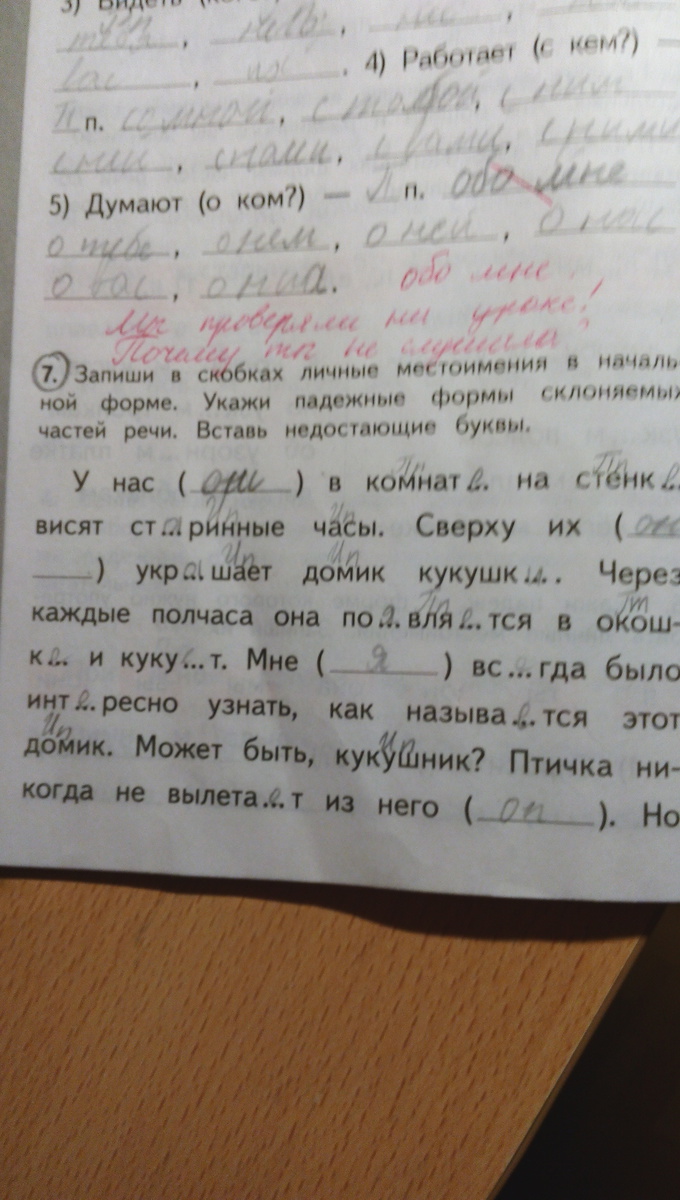 3) Видеть
тебя, него,
вас, их. 4) Работает (с кем?) —
Т п. со мной, с тобой, с ним
с ней, с нами, с вами, с ними
5) Думают (о ком?) — П п. обо мне
о тебе, о нем, о ней, о нас
о вас, о них. обо мне
Мы проверяли на уроке!
Почему ты не слушала?
7. Запиши в скобках личные местоимения в началь-
ной форме. Укажи падежные формы склоняемых
частей речи. Вставь недостающие буквы.
Пп Пп
У нас ( ) в комнат е.. на стенк
Ип Ип
висят ст а.. ринные часы. Сверху их ( он
Ип Ип
) укр а.. шает домик кукушк и... Через
Пп
каждые полчаса она по я.. вля е.. тся в окош-
к е.. и куку ... т. Мне ( я ) вс е... гда было
инт е.. ресно узнать, как называ е.. тся этот
Ип Ип
домик. Может быть, кукушник? Птичка ни-
когда не вылета е.. т из него ( он ). Но